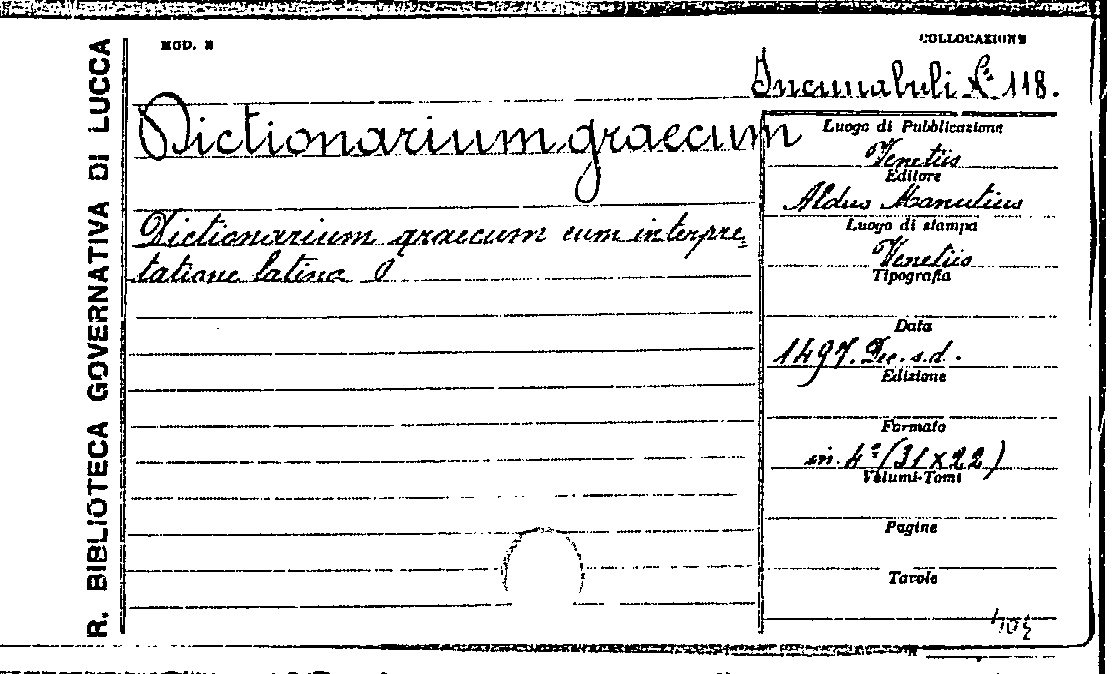 R. BIBLIOTECA GOVERNATIVA DI LUCCA
MOD. 2
COLLOCAZIONE
Incunabuli N.° 118.
Dictionarium graecum
Dictionarium graecum cum interpre=
tatione latina
Luogo di Pubblicazione
Venetiis
Editore
Aldus Manutius
Luogo di stampa
Venetiis
Tipografia
Data
1497. Dec. s.d.
Edizione
Formato
in. 4° (31 x 22)
Volumi-Tomi
Pagine
Tavole